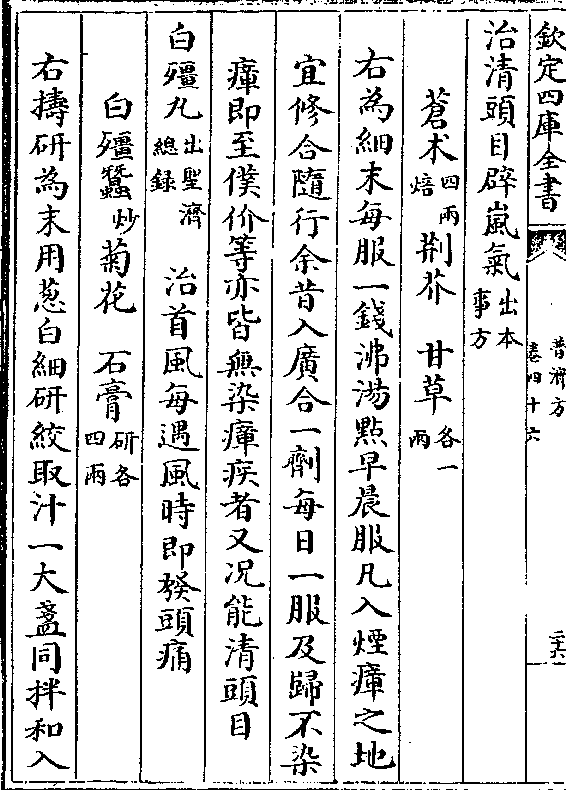 欽定四庫全書
普濟方
卷四十六
二十六
治清頭目辟嵐氣出本事方
蒼术四兩焙 荆芥 甘草各一兩
右為細末每服一錢沸湯㸃早晨服凡入煙瘴之地
宜修合隨行余昔入廣合一劑每日一服及歸不染
瘴即至僕价等亦皆無染瘴疾者又况能清頭目
白殭丸出聖濟總録 治首風每遇風時即發頭痛
白殭蠶炒 菊花 石膏研各四兩
右擣研為末用葱白細研絞取汁一大盞同拌和入